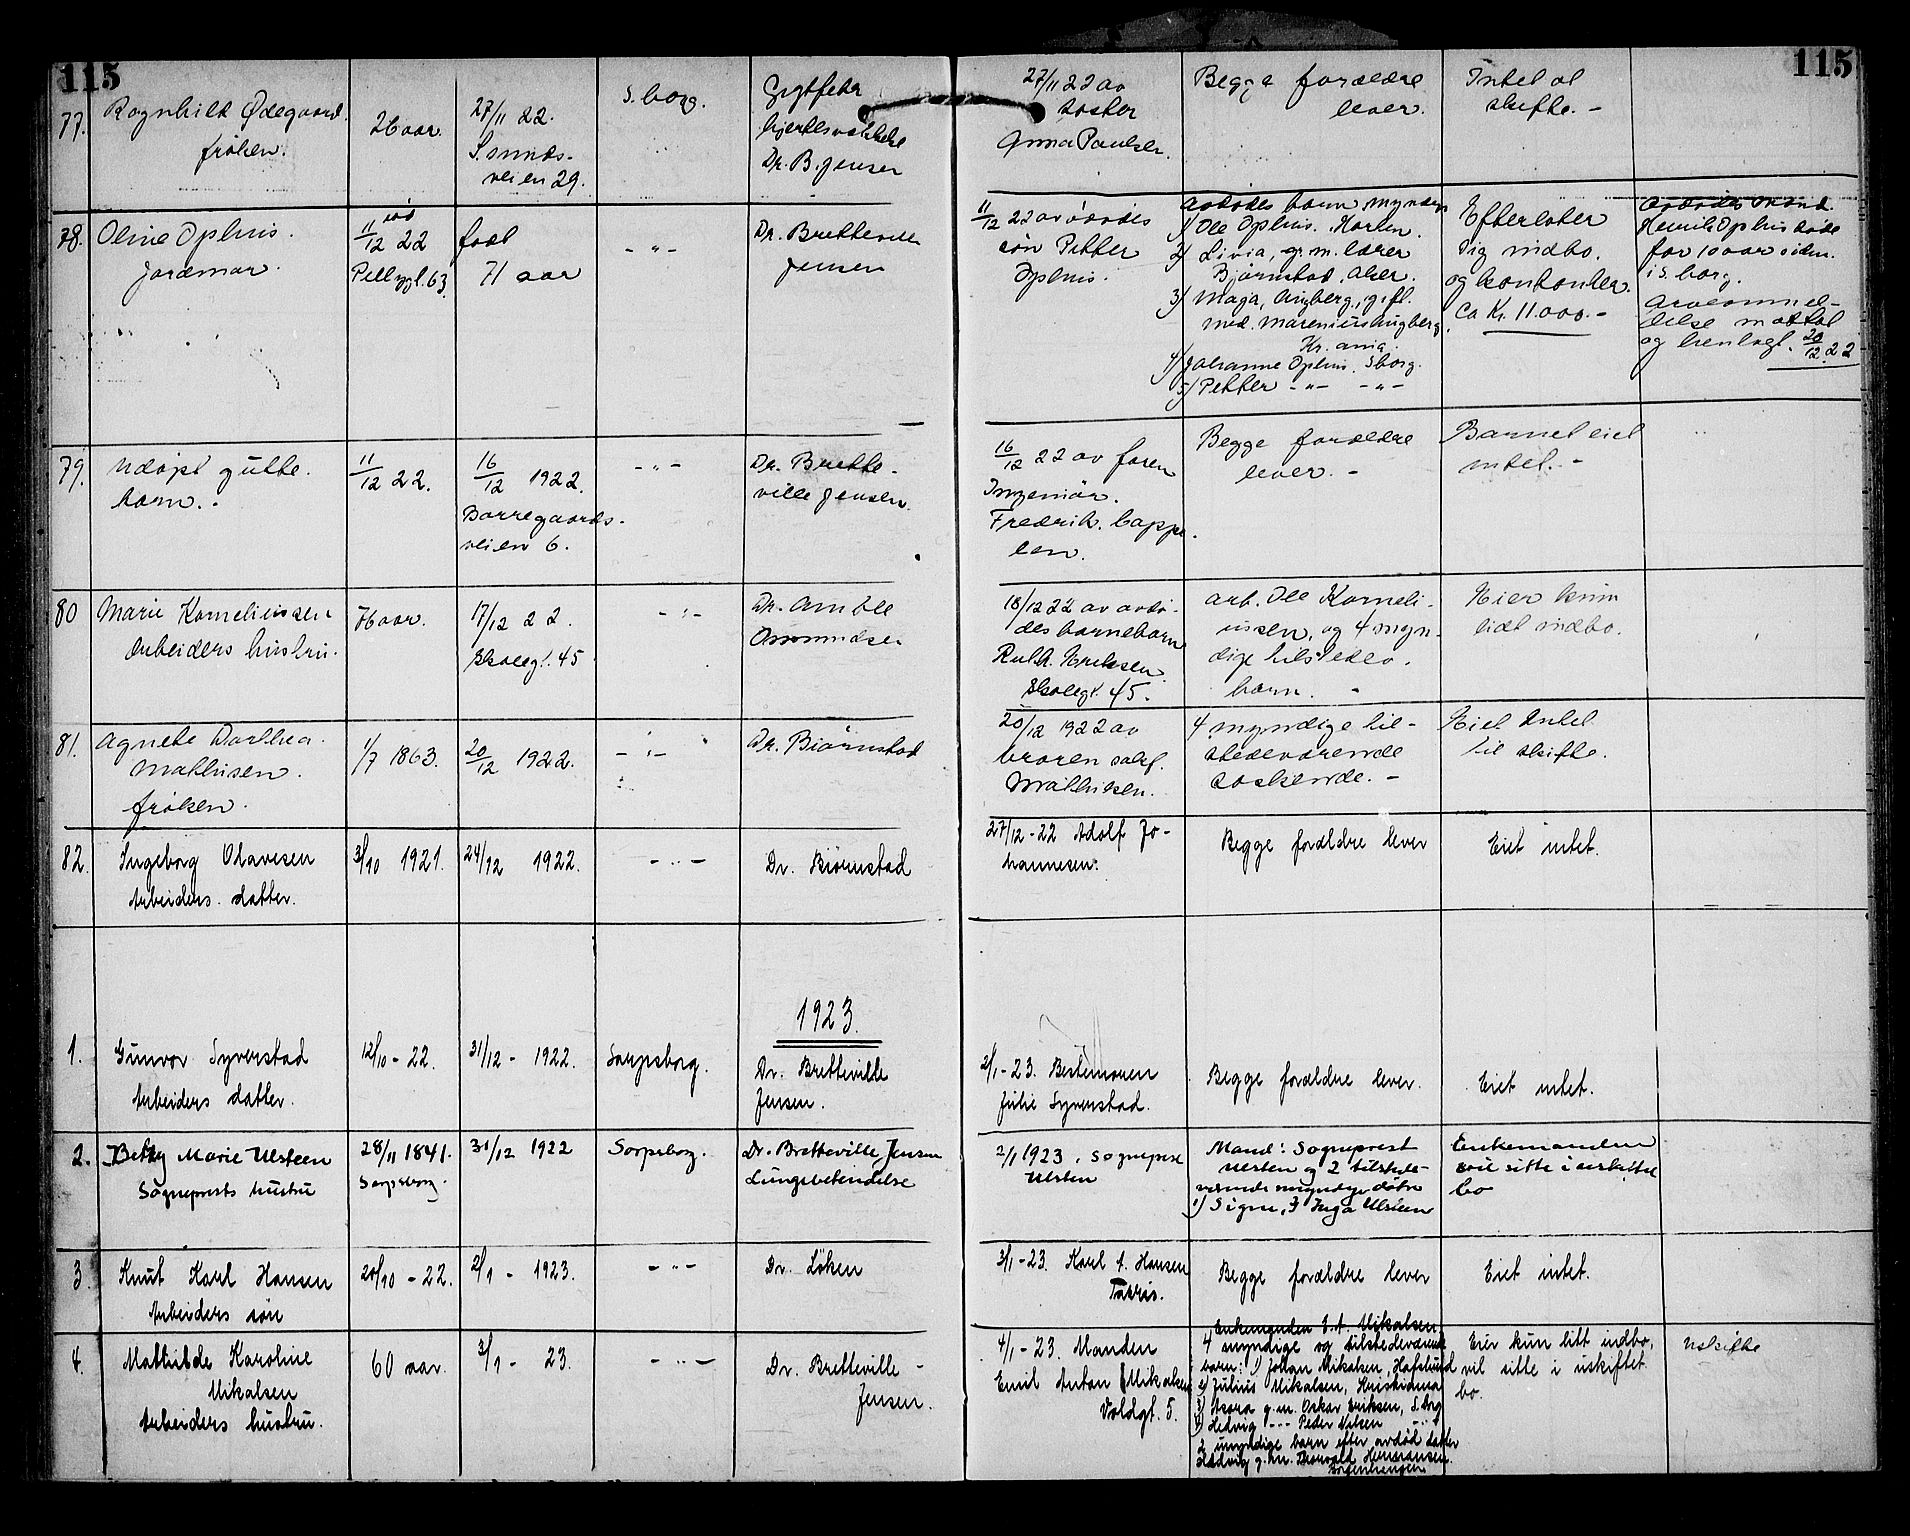 115
115
77.
Ragnhild Ødegaard.
frøken.
26 aar.
27/11 22.
veien 29.
S. borg.
Gigtfeber
Dr. B. Jensen
27/11 22 av
søster
Anna Paulsen.
Begge forældre
lever.
Intet at
skifte. -
78.
Oline Ophus.
jordmor.
død
11/12 22
Pellygt. 63.
født
71 aar
- " -
Dr. Bretteville
Jensen
11/12 22 av avdødes
søn Petter
Ophus.
avdødes barn, myndige
1) Ole Ophus. Horten.
2) Livia, g. m. lærer
Bjørnstad,
3) Maja, Angberg, gift.
med. Marenius Angberg.
Kr.ania.
4) Johanne Ophus. Sborg.
5) Petter - " - - " -
Efterlater
sig indbo.
og kontanter.
Ca Kr. 11.000.-
avdødes mand.
Henrik Ophus døde
for 10 aar siden.
i S.borg.
Arveanmel-
delse mottat
og henlagt. 20/12 22
79.
Udøpt gutte.
barn. -
11/12 22.
16/12 1922.
Borregaards.
veien 6.
- " -
Dr. Brette-
ville Jensen.
16/12 22 av faren
Ingeniør.
Fredrik. Cappe.
len.
Begge forældre
lever. -
Barnet eiet
intet. -
80
Marie Korneliussen
Arbeiders hustru.
76 aar.
17/12 22.
Skolegt. 45
- " -
Dr. Amble
Ommundsen
18/12 22 av avdø-
des barnebarn
Ruth. Eriksen.
Skolegt. 45.
arb. Ole Korneli-
ussen, og 4 myn-
dige tilstedev.
barn. -
Eier kun
lidt indbo.
81.
Agnete Dorthea
Mathisen.
frøken.
1/7 1863.
20/12 1922.
- " -
Dr. Biørnstad
20/12 1922 av
broren
Mathisen.
4 myndige til-
stedeværende
søskende. -
Eiet Intet
til skifte.
82.
Ingeborg Olavesen
Arbeiders. datter.
3/10 1921.
24/12 1922.
- " -
Dr. Biørnstad
27/12 - 22 Adolf Jo-
hannesen.
Begge forældre lever
Eiet intet.
1923.
1.
Gunvor Syverstad
Arbeiders datter.
12/10 - 22.
31/12 - 1922.
Sarpsborg.
Dr. Bretteville
Jensen.
2/1 - 23. Bestemoren
Julie Syverstad.
Begge forældre lever.
Eiet intet.
2.
Betzy Marie Ulsteen
Sogneprests hustru
28/11 1841.
Sarpsborg.
31/12 1922
Sarpsborg.
Dr. Bretteville Jensen
Lungebetendelse
2/1 1923. Sogneprest
Ulsten
Mand: Sogneprest
Ulsten og 2 tilstede-
værende myndige døtre
1) Signe, 2 Inga Ulsteen
Enkemanden
vil sitte i uskiftet
bo
3.
Knut Karl Hansen
Arbeiders søn
20/10 - 22.
2/1 - 1923.
- " -
Dr. Løken
3/1 - 23. Karl A. Hansen
Begge forældre lever
Eiet intet.
4.
Mathilde Karoline
Mikalsen
Arbeiders hustru.
60 aar.
3/1 - 23.
- " -
Dr. Bretteville -
Jensen.
4/1 - 23. Manden
Emil Anton Mikalsen
Voldgt. 5.
Enkemanden E. A. Mikalsen.
4 myndige og tilstedeværende
barn: 1) Johan Mikalsen, Hafslund
2) Julius Mikalsen, Kristiania
3) Asora g. m. Oskar Eriksen, S.borg
4) Hedvig - " - Peder Nilsen - " -
2 umyndige barn efter avdød datter
Hedvig g. m. Thorvald Hermansen.
Eier kun litt indbo,
vil sitte i uskiftet
bo.
Uskifte